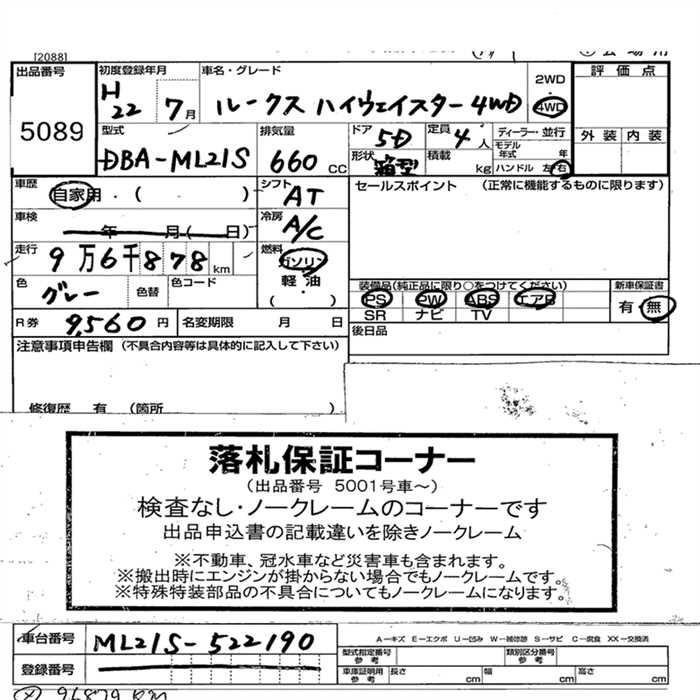 [2088]
出品番号 5089
初度登録年月 H22 7月
車名・グレード ルークス ハイウェイスター 4WD
2WD 4WD
評価点
外装 内装
型式 DBA-ML21S
排気量 660 CC
ドア 5D
定員 4人
形状 箱型
積載 kg
ディーラー・並行
モデル年式 年
ハンドル 左・右
車歴 自家用・( )
シフト AT
セールスポイント (正常に機能するものに限ります)
車検 年 月( 日)
冷房 A/C
走行 9万6千878km
燃料 ガソリン
軽・油
( )
色 グレー 色替 色コード
装備品(純正品に限り○をつけてください)
PS PW ABS エアB
SR ナビ TV
新車保証書
有・無
R券 9,560円
名変期限 月 日
後日品
注意事項申告欄 (不具合内容等は具体的に記入して下さい)
修復歴 有 (箇所
落札保証コーナー
(出品番号 5001号車~)
検査なし・ノークレームのコーナーです
出品申込書の記載違いを除きノークレーム
※不動車、冠水車など災害車も含まれます。
※搬出時にエンジンが掛からない場合でもノークレームです。
※特殊特装部品の不具合についてもノークレームになります。
車台番号 ML21S-522190
A-キズ E-エクボ U-凹み W-補修跡 S-サビ C-腐食 XX-交換済
登録番号
型式指定番号 参考
類別区分番号 参考
車庫証明用 参考 長さ cm 幅 cm 高さ cm
96879 KM